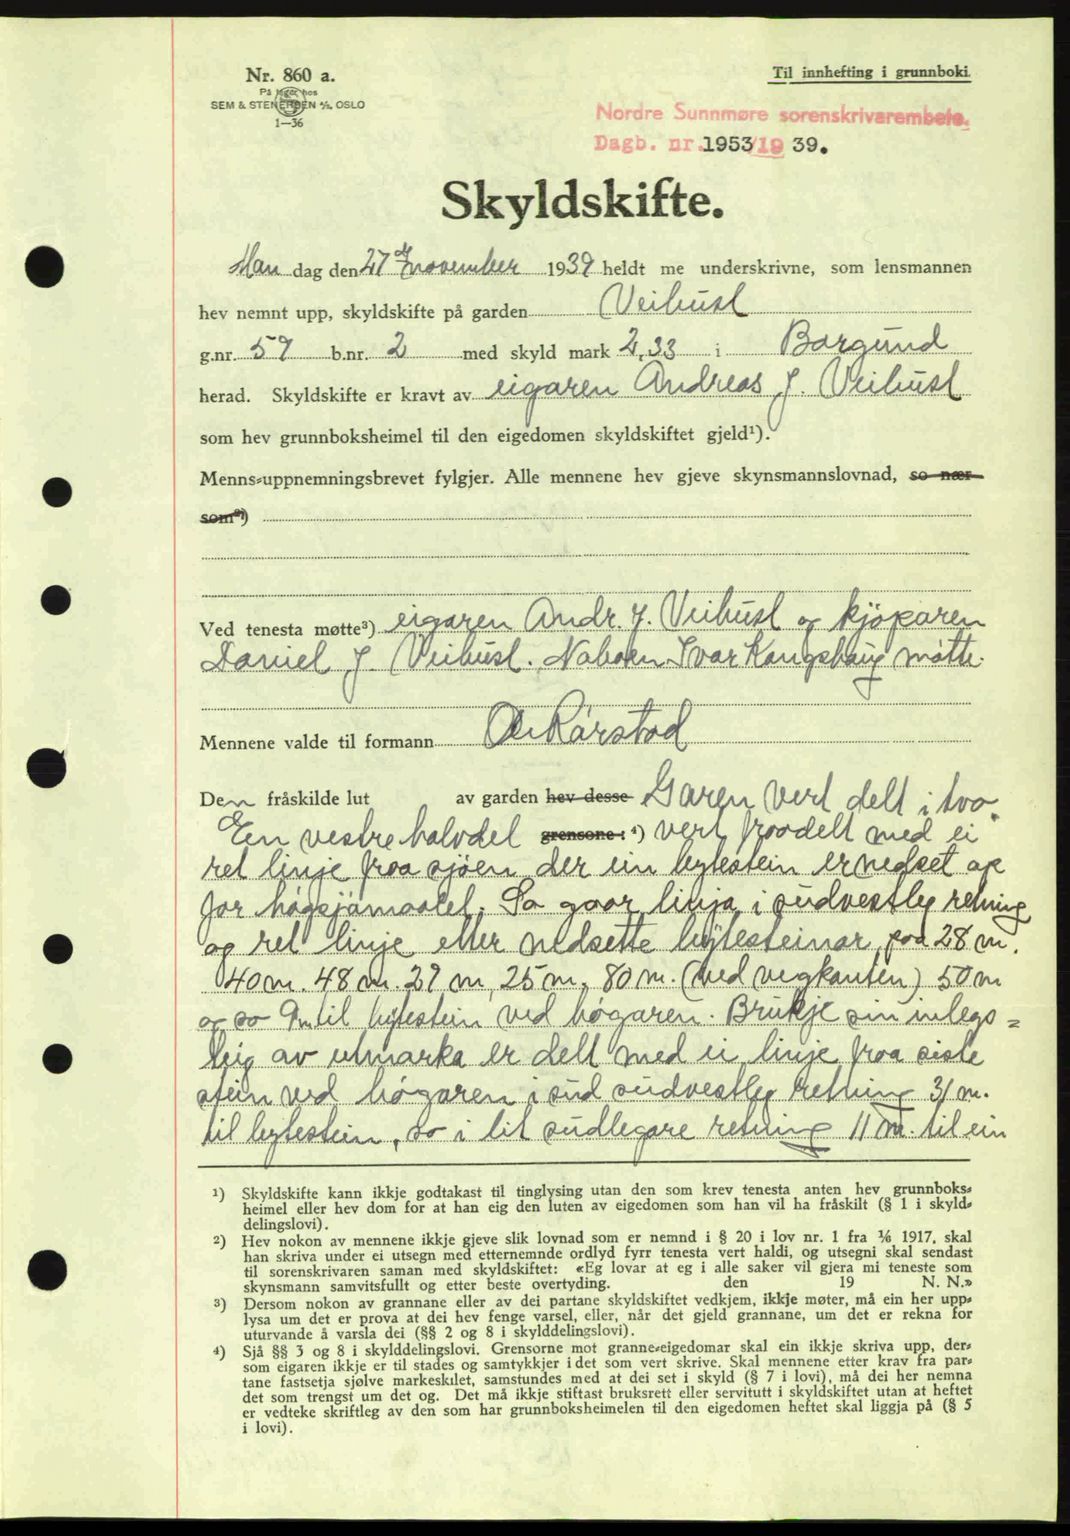 Nr. 860 a.
På lager hos
SEM & STENERSEN A/S, OSLO
1—36
Til innhefting i grunnboki.
Nordre Sunnmøre sorenskrivarembete.
Dagb. nr. 1953/19 39.
Skyldskifte.
Man dag den 27 d november 1939 heldt me underskrivne, som lensmannen
hev nemnt upp, skyldskifte på garden Veibust
g.nr. 57 b.nr. 2 med skyld mark 2,33 i Borgund
herad. Skyldskifte er kravt av eigaren Andreas J. Veibust
som hev grunnboksheimel til den eigedomen skyldskiftet gjeld¹).
Menns-uppnemningsbrevet fylgjer. Alle mennene hev gjeve skynsmannslovnad, so nær
som²)
Ved tenesta møtte³) eigaren Andr. J. Veibust og kjöparen
Daniel J. Veibust. Naboen Ivar Kongshaug møtte.
Mennene valde til formann O Rörstad
Den fråskilde lut av garden hev desse Garen vert delt i tvo.
En vestre halvdel grensone: ⁴) vert fraadelt med ei
ret linje fraa sjöen der ein bytestein er nedset op
for högsjömaalet. So gaar linja i südvestleg retning
og ret linje etter nedsette bytesteinar paa 28 m.
40 m. 48 m. 29 m, 25 m, 80 m. (ved vegkanten) 50 m
og so 9m til bytestein ved høgaren. Brukje sin inlegs=
teig av utmarka er delt med ei linje fraa siste
stein ved høgaren i sud südvestleg retning 31 m.
til bytestein, so i lit südlegare retning 11 m. til ein
¹) Skyldskifte kann ikkje godtakast til tinglysing utan den som krev tenesta anten hev grunnboks-
heimel eller hev dom for at han eig den luten av eigedomen som han vil ha fråskilt (§ 1 i skyld-
delingslovi).
²) Hev nokon av mennene ikkje gjeve slik lovnad som er nemnd i § 20 i lov nr. 1 fra ⅙ 1917, skal
han skriva under ei utsegn med etternemnde ordlyd fyrr tenesta vert haldi, og utsegni skal sendast
til sorenskrivaren saman med skyldskiftet: «Eg lovar at eg i alle saker vil gjera mi teneste som
skynsmann samvitsfullt og etter beste overtyding. den 19 N. N.»
³) Dersom nokon av grannane eller av dei partane skyldskiftet vedkjem, ikkje møter, må ein her upp-
lysa um det er prova at dei hev fenge varsel, eller, når det gjeld grannane, um det er rekna for
uturvande å varsla dei (§§ 2 og 8 i skylddelingslovi).
⁴) Sjå §§ 3 og 8 i skylddelingslovi. Grensorne mot granne-eigedomar skal ein ikkje skriva upp, der-
som eigaren ikkje er til stades og samtykkjer i det som vert skrive. Skal mennene etter krav fra par-
tane fastsetja sjølve markeskilet, samstundes med at dei set i skyld (§ 7 i lovi), må dei her nemna
det som trengst um det og. Det må ikkje stiftast bruksrett eller servitutt i skyldskiftet utan at heftet
er vedteke skriftleg av den som har grunnboksheimelen til den eigedomen heftet skal liggja på (§ 5
i lovi).